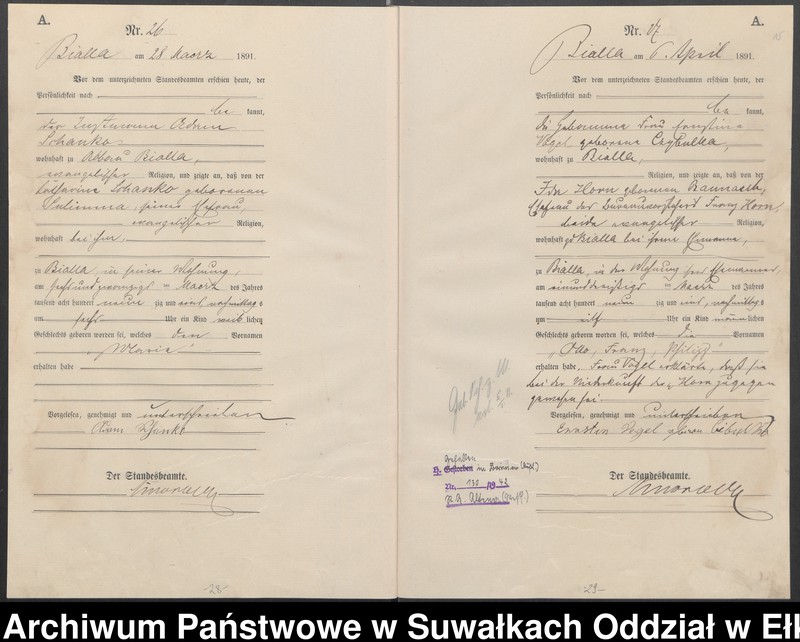 A.
Nr. 26
Bialla am 28 Maerz 1891.
Vor dem unterzeichneten Standesbeamten erschien heute, der
Persönlichkeit nach
be kannt,
der Instmann Adam
Schanko
wohnhaft zu Abbau Bialla,
evangelischer Religion, und zeigte an, daß von der
Catharine Schanko geborenen
Sulimma, seiner Ehefrau,
evangelischer Religion,
wohnhaft bei ihm,
zu Bialla, in seiner Wohnung,
am sechsundzwanzigs ten Maerz des Jahres
tausend acht hundert neun zig und eins, nachmittag s
um sechs Uhr ein Kind weib lichen
Geschlechts geboren worden sei, welches den Vornamen
„Marie"
erhalten habe
Vorgelesen, genehmigt und unterschrieben
Der Standesbeamte.
-28-
A.
Nr. 27
Bialla am 6. April 1891.
Vor dem unterzeichneten Standesbeamten erschien heute, der
Persönlichkeit nach
be kannt,
die Hebamme Frau
Vogel geborene
wohnhaft zu Bialla,
Religion, und zeigte an, daß von der
Ida Horn geborenen
Ehefrau des Franz Horn,
beide evangelischer Religion,
wohnhaft zu Bialla bei ihrem Ehemanne,
zu Bialla, in der Wohnung ihres Ehemannes,
am einunddreißigs ten Maerz des Jahres
tausend acht hundert neun zig und eins, nachmittag s
um elf Uhr ein Kind männ lichen
Geschlechts geboren worden sei, welches die Vornamen
„Otto, Franz, Philipp"
erhalten habe, Frau Vogel erklärte, daß sie
bei der Niederkunft der Horn zugegen
gewesen sei
Vorgelesen, genehmigt und unterschrieben
Vogel
Der Standesbeamte.
Gefallen
Gestorben in
Nr. 130 19 43
-29-
Archiwum Państwowe w Suwałkach Oddział w Ełk